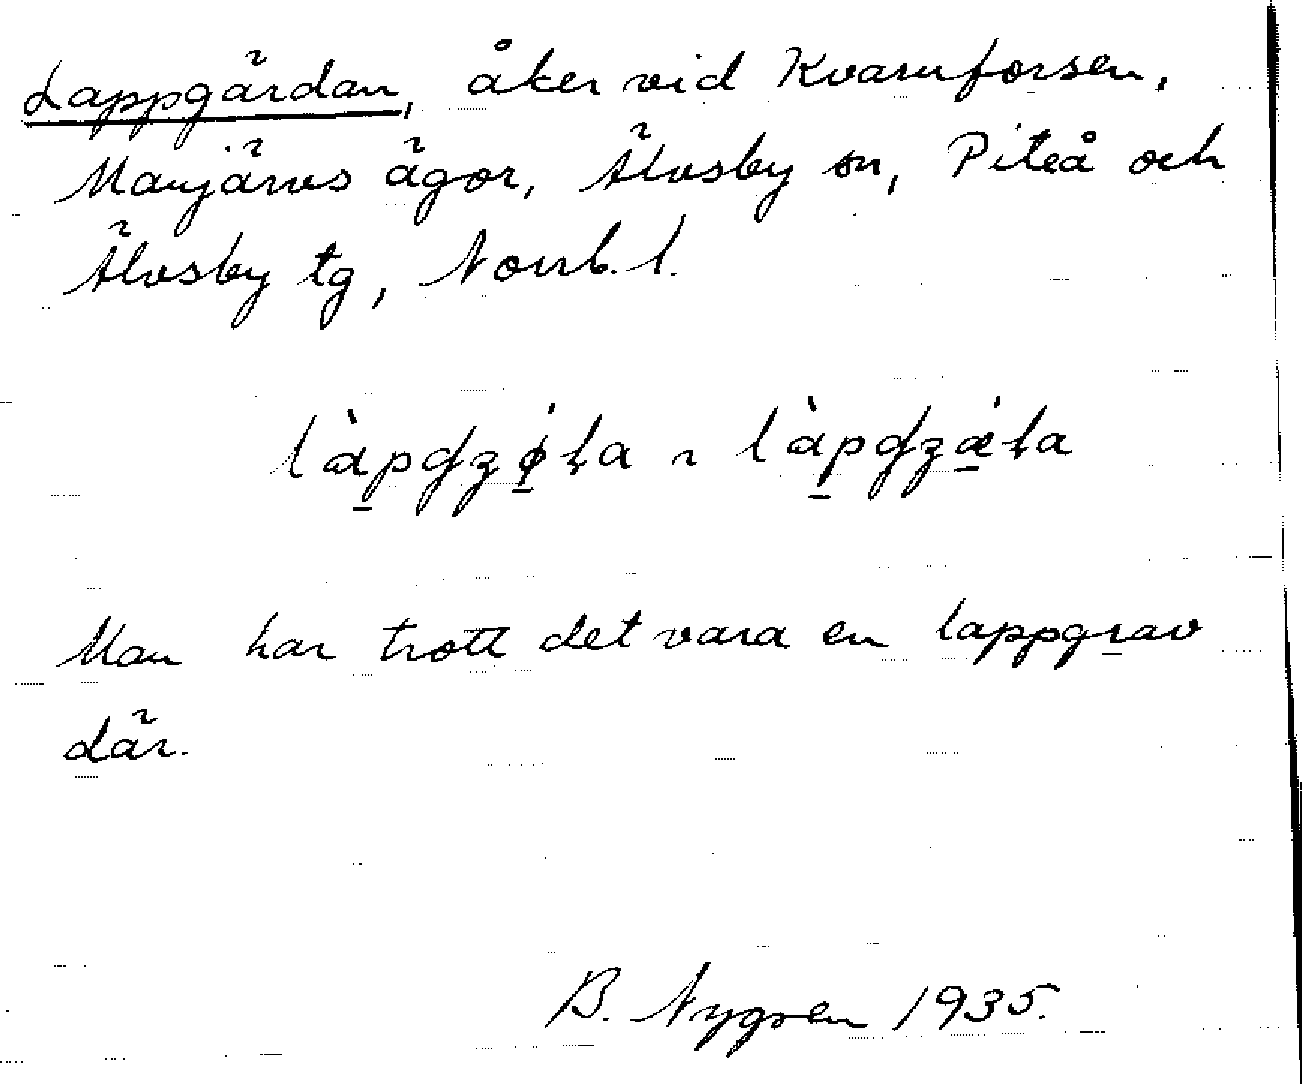 Lappgärdan, åker vid Kvarnforsen,
Manjärvs ägor, Älvsby sn, Piteå och
Älvsby tg, Norrb. l.
Man har trott det vara en lappgrav
där.
B. Nygren 1935.